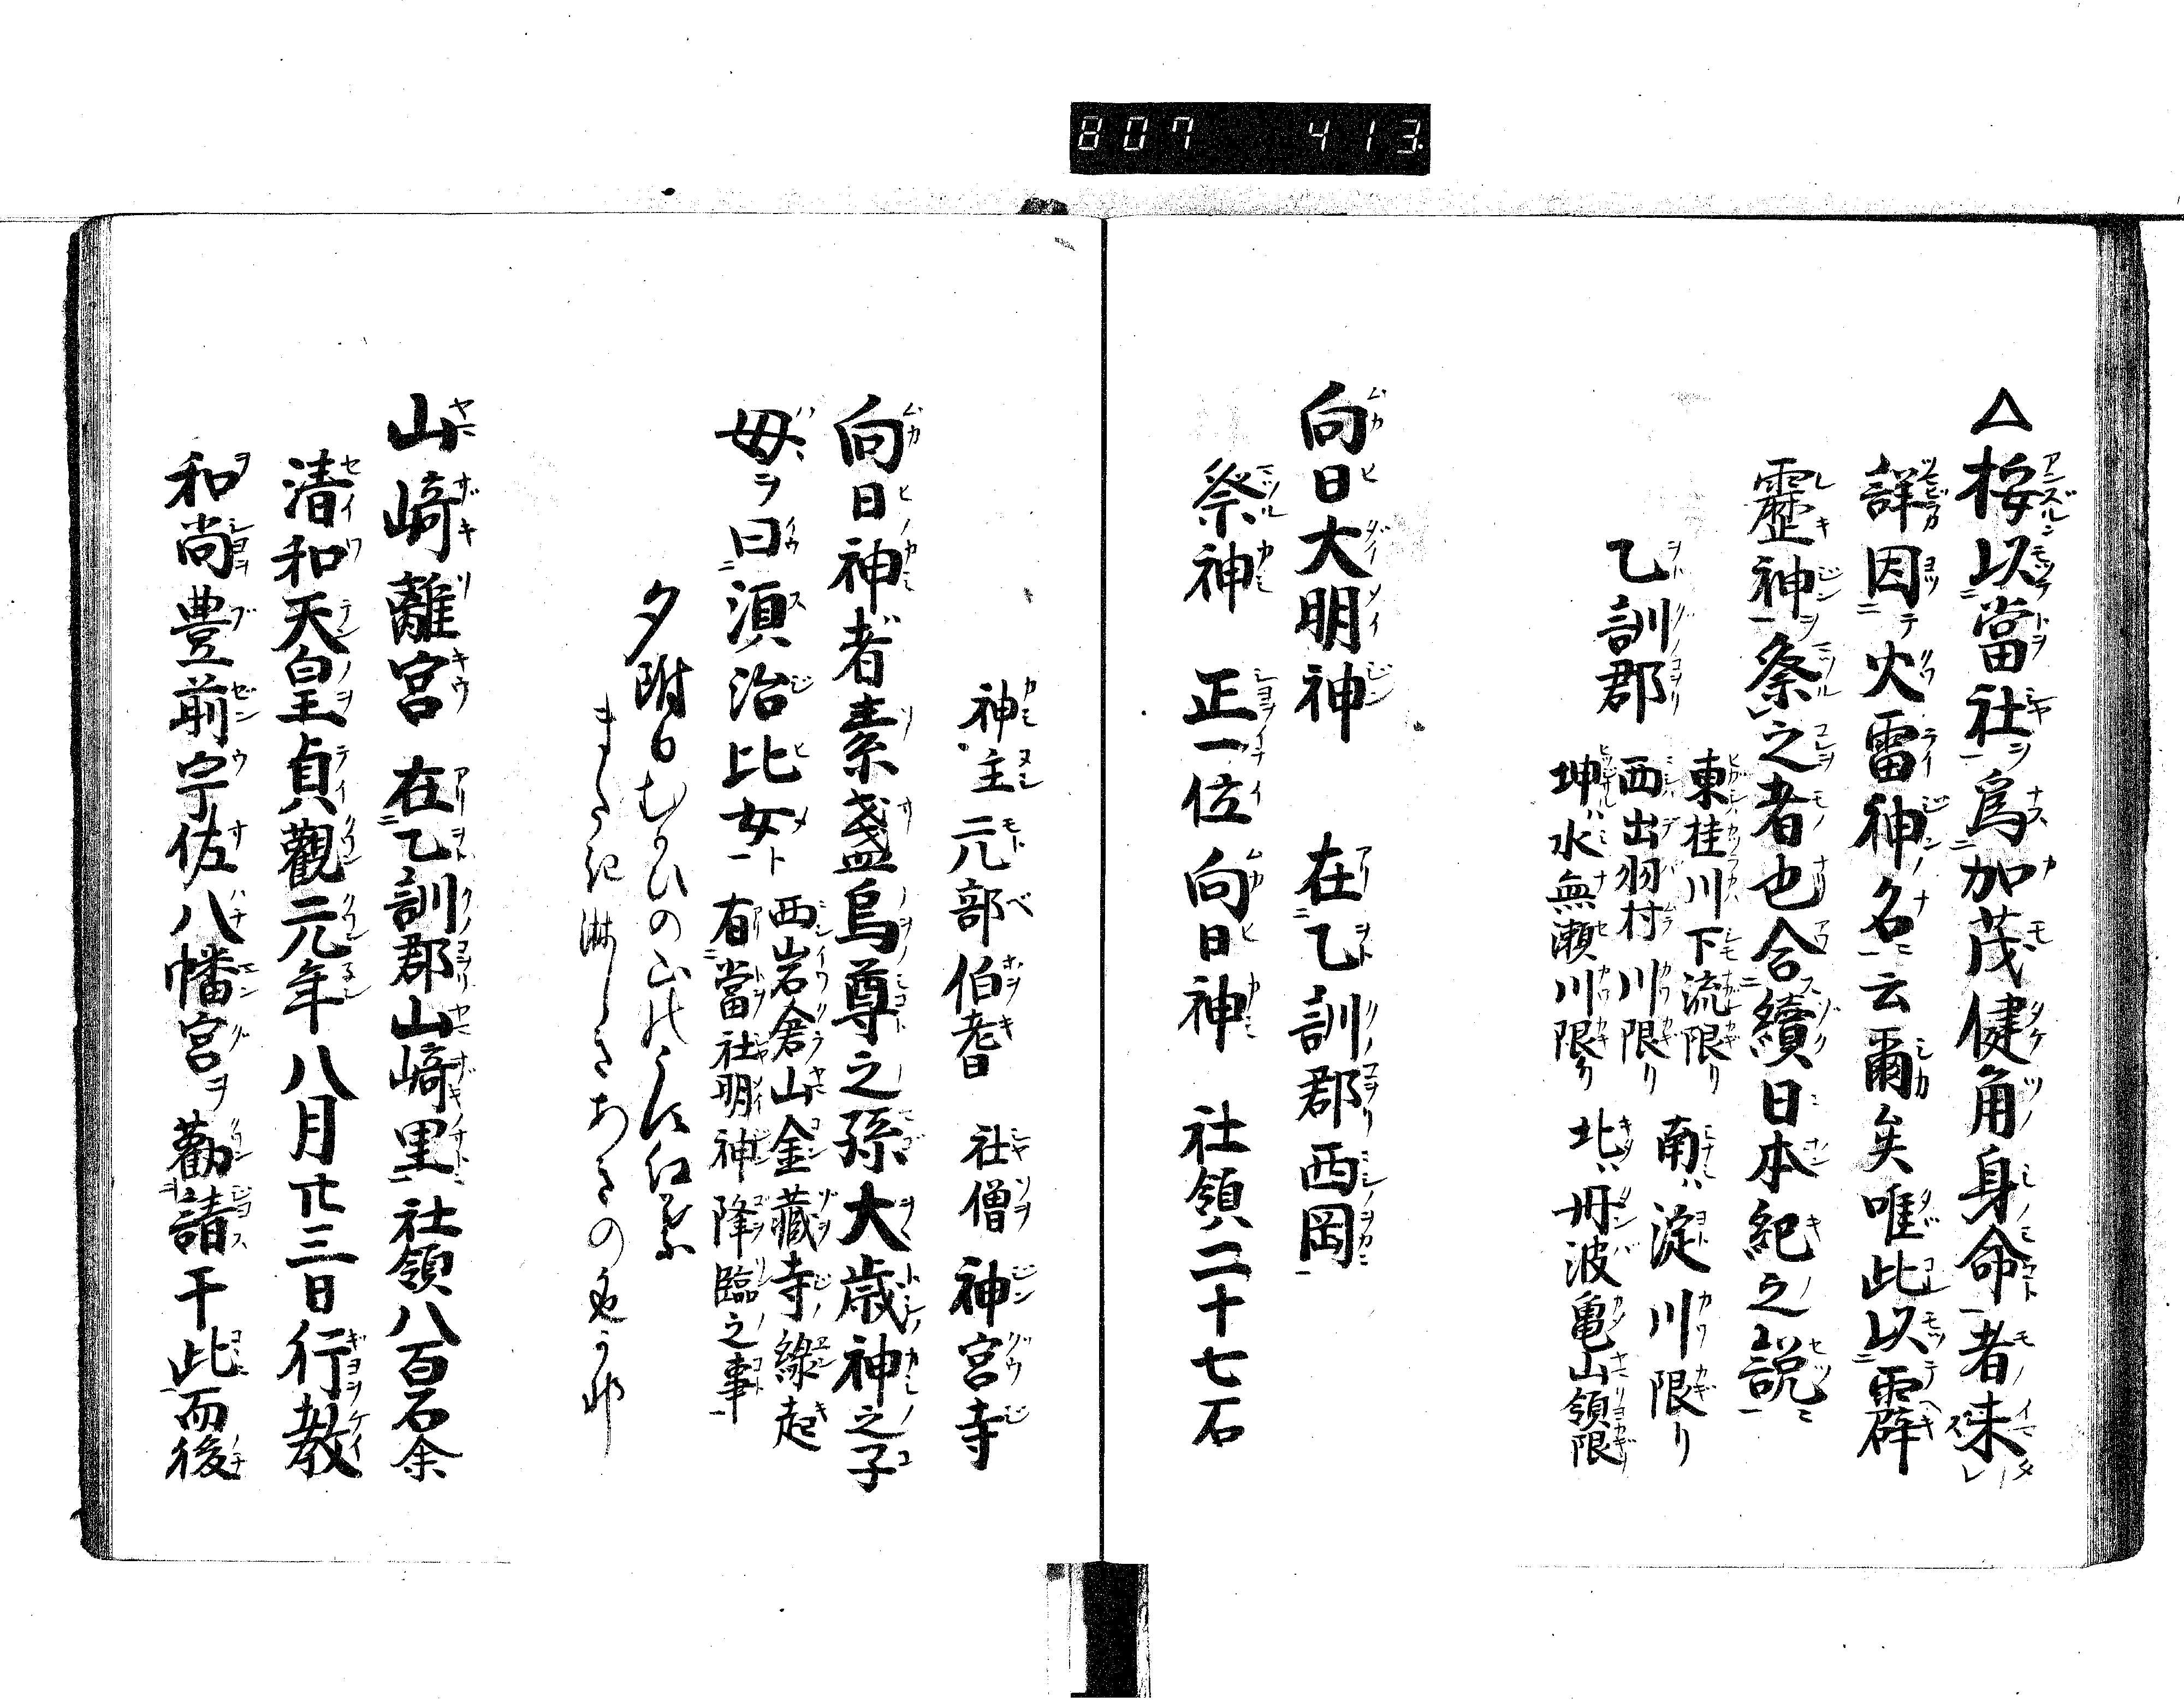 807 413
△桉以當社爲加茂健角身命者未
詳因火雷神名云爾矣唯此以霹
靂神祭之者也合續日本紀之説
乙訓郡
東桂川下流限リ 南ハ淀川限リ
西出羽村川限リ
坤ハ水無瀬川限リ 北ハ丹波亀山領限
向日大明神 在乙訓郡西岡
祭神 正一位向日神 社領二十七石
神主元部伯耆 社僧神宮寺
向日神者素盞烏尊之孫大歳神之子
母ヲ曰須治比女ト
西岩倉山金藏寺縁起
有當社明神降臨之事
夕附日むかひの山の
淋しき
山﨑離宮 在乙訓郡山﨑里 社領八百石余
清和天皇貞觀元年八月廿三日行教
和尚豊前宇佐八幡宮ヲ勸請干此而後